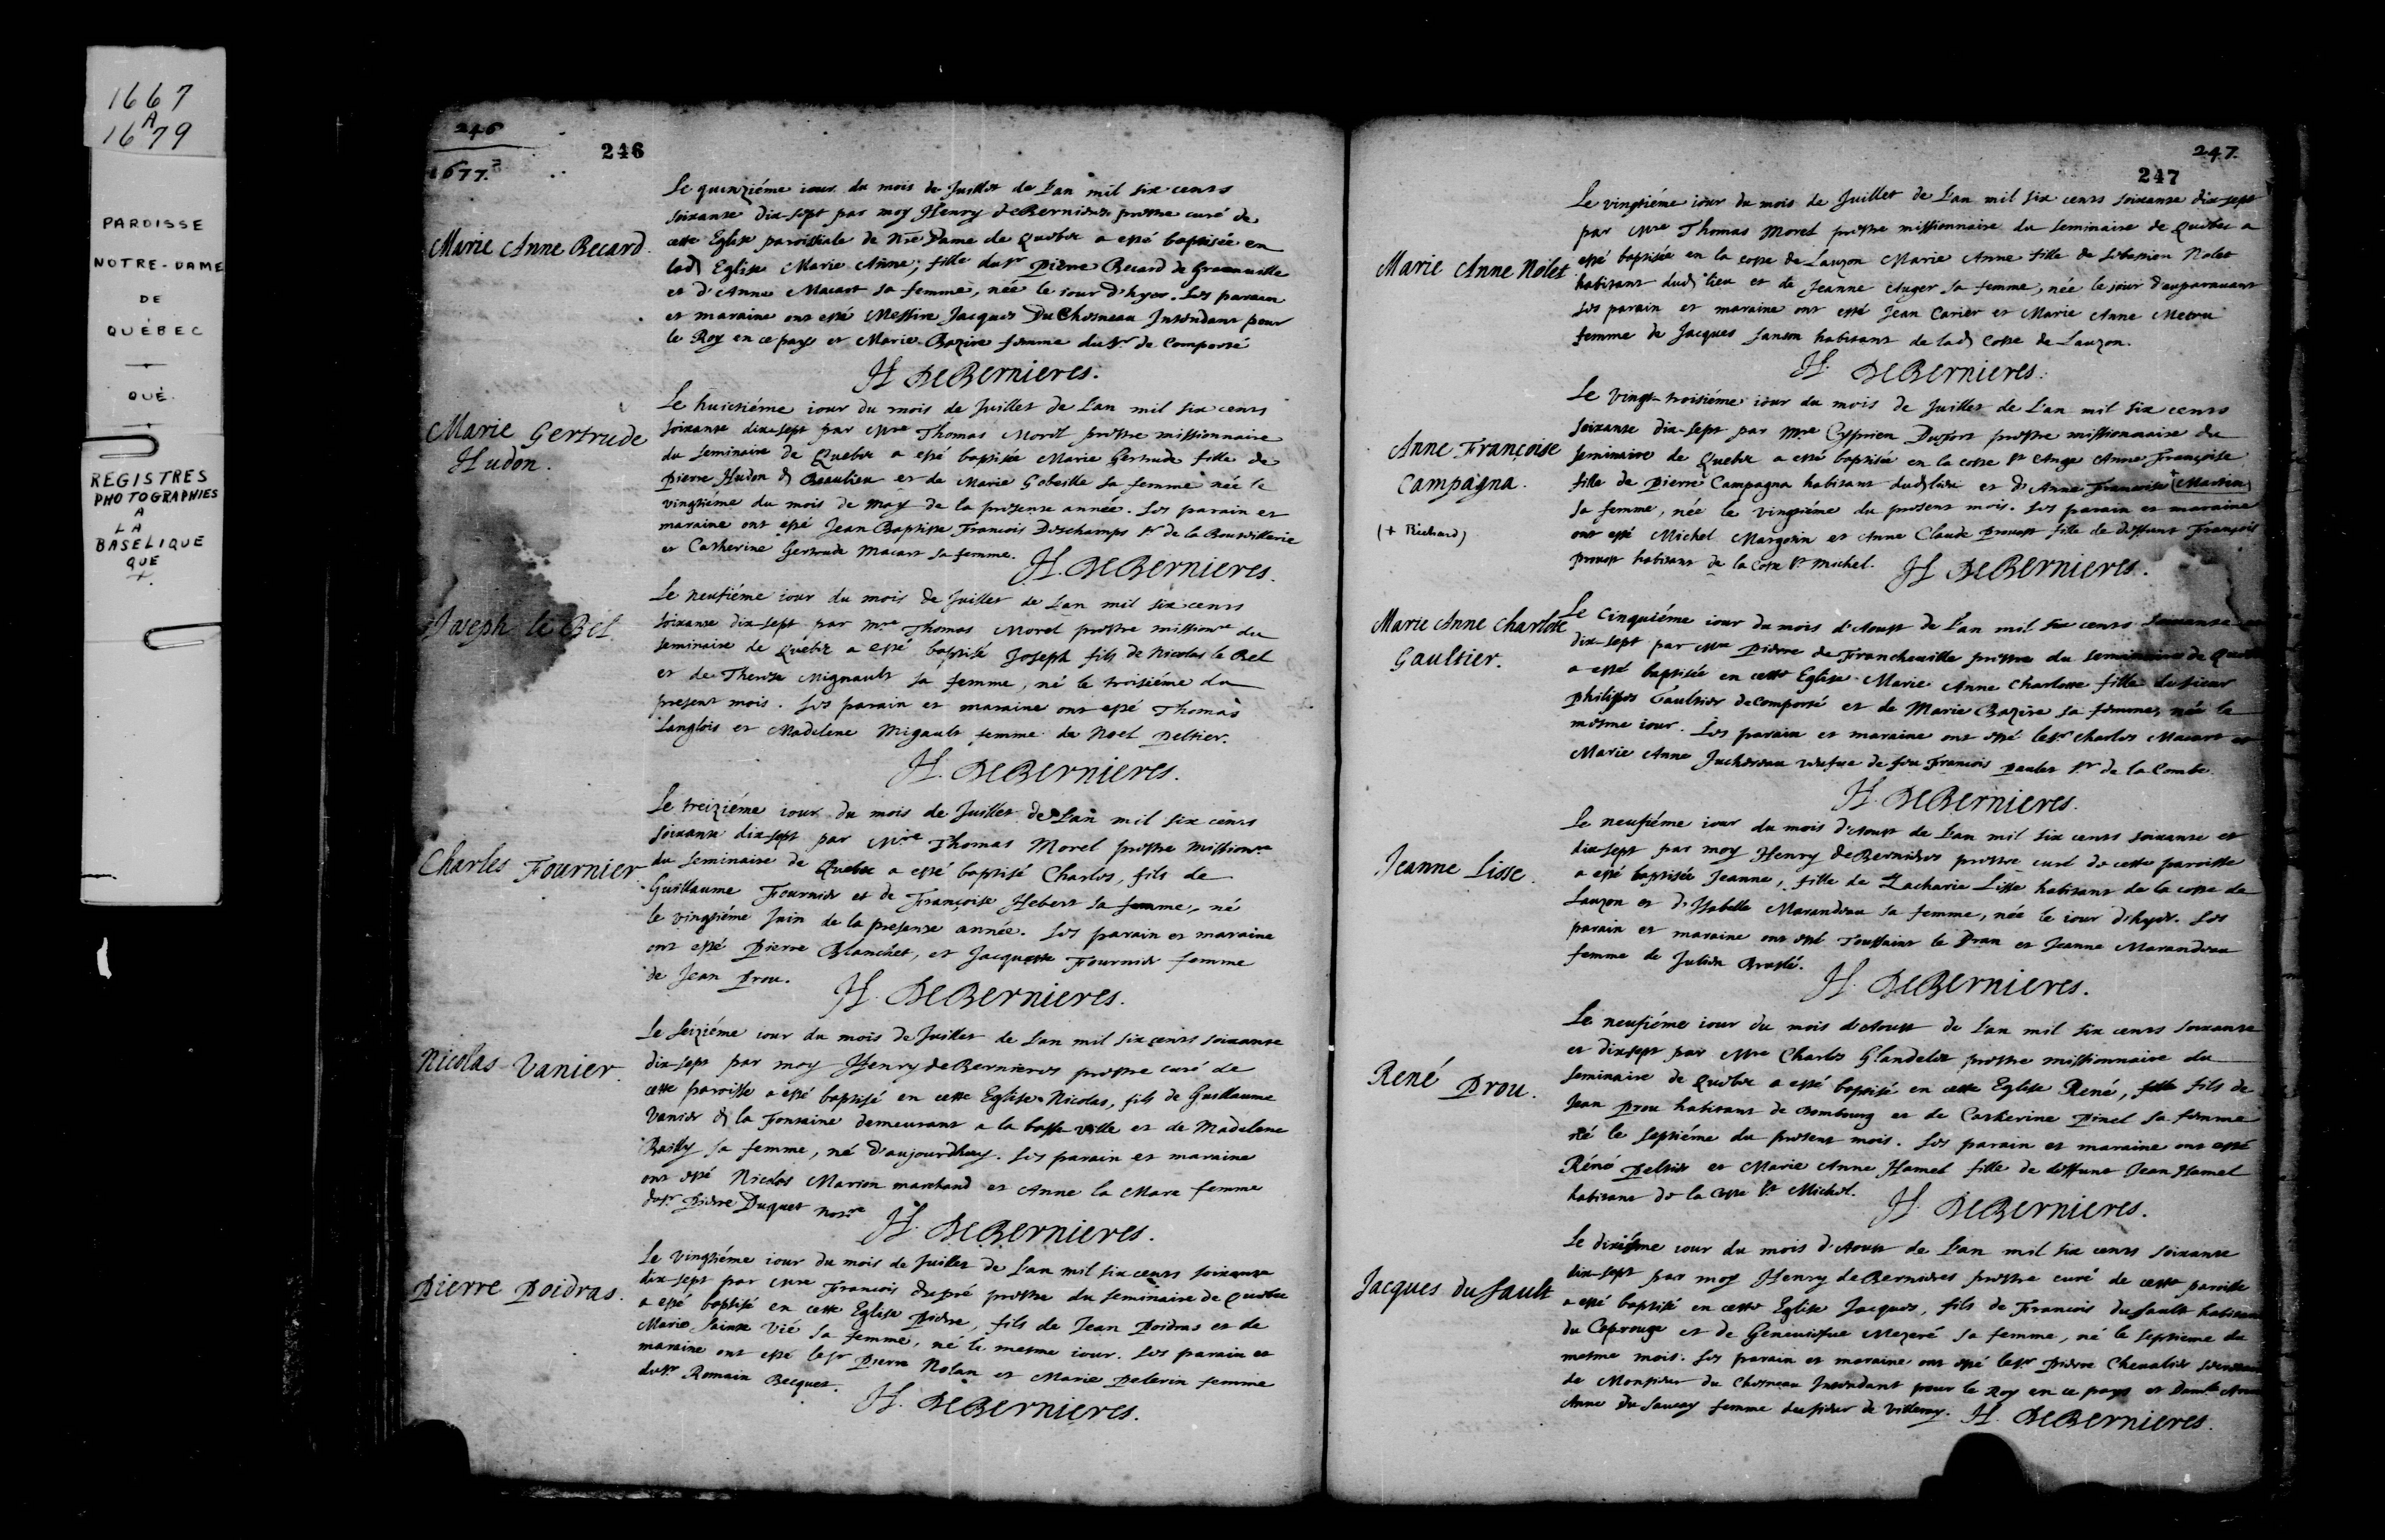 1667
A
1679
PAROISSE
NOTRE-DAME
DE
QUÉBEC
QUÉ.
REGISTRES
PHOTOGRAPHIES
A
LA
BASELIQUE
QUE
246
246
1677.
Marie Anne Becard.
Le quinziéme iour du mois de Juillet de L'an mil six cents
soixante dix-sept par moy Henry deBernieres prestre curé de
cette Eglise paroissiale de Nre Dame de Quebec a esté baptisée en
lad Eglise Marie Anne, fille du sr Pierre Becard de Grandville
et d'Anne Macart sa femme, née le iour d'hyer. Les parain
et maraine ont esté Messire Jacques DuChesneau Intendant pour
le Roy en ce pays et Marie Bazire femme du sr de Comporté
H. DeBernieres.
Marie Gertrude
Hudon.
Le huictiéme iour du mois de Juillet de L'an mil six cents
soixante dix-sept par Mre Thomas Morel prestre missionnaire
du seminaire de Quebec a esté baptisée Marie Gertrude fille de
Pierre Hudon d Beaulieu et de Marie Gobeille sa femme née le
vingtiéme du mois de may de la presente année. Les parain et
maraine ont esté Jean Baptiste Francois Deschamps sr de la Bouteillerie
et Catherine Gertrude Macart sa femme.
H. DeBernieres.
Joseph le Bel.
Le neufiéme iour du mois de Juillet de L'an mil six cents
soixante dix-sept par Mre Thomas Morel prestre missionre du
seminaire de Quebec a esté baptisé Joseph fils de Nicolas le Bel
et de Therese Mignault sa femme, né le troisiéme du
present mois. Les parain et maraine ont esté Thomas
Langlois et Madelene Migault femme de Noel Peltier.
H. DeBernieres.
Charles Fournier
Le treiziéme iour du mois de Juillet de L'an mil six cents
soixante dix-sept par Mre Thomas Morel prestre missionre
du seminaire de Quebec a esté baptisé Charles, fils de
Guillaume Fournier et de Françoise Hebert sa femme, né
le vingtiéme Juin de la presente année. Les parain et maraine
ont esté Pierre Blanchet, et Jacquette Fournier femme
de Jean Prou.
H. DeBernieres.
Nicolas Vanier.
Le seiziéme iour du mois de Juillet de L'an mil six cents soixante
dix-sept par moy Henry deBernieres prestre curé de
cette paroisse a esté baptisé en cette Eglise Nicolas, fils de Guillaume
Vanier d la Fontaine demeurant a la basse ville et de Madelene
Bailly sa femme, né d'aujourdhuy. Les parain et maraine
ont esté Nicolas Marion marchand et Anne la Mare femme
du sr Pierre Duquet notre
H. DeBernieres.
Pierre Poidras.
Le vingtiéme iour du mois de Juillet de L'an mil six cents soixante
dix-sept par Mre Francois dupré prestre du seminaire de Quebec
a esté baptisé en cette Eglise Pierre, fils de Jean Poidras et de
Marie sainte Vié sa femme, né le mesme iour. Les parain et
maraine ont esté le sr Pierre Nolan et Marie Pelerin femme
du sr Romain Becquet.
H. DeBernieres.
247.
247
Marie Anne Nolet
Le vingtiéme iour du mois de Juillet de L'an mil six cents soixante dix-sept
par Mre Thomas Morel prestre missionnaire du seminaire de Quebec a
esté baptisée en la coste de Lauzon Marie Anne fille de Sebastien Nolet
habitant dud lieu et de Jeanne Auger sa femme, née le jour d'auparavant
Les parain et maraine ont esté Jean Carier et Marie Anne Metru
femme de Jacques Sanson habitant de lad Coste de Lauzon.
H. DeBernieres.
Anne Françoise
Campagna.
(+ Richard)
Le vingt-troisiéme iour du mois de Juillet de L'an mil six cents
soixante dix-sept par Mre Cyprien Dufort prestre missionnaire du
seminaire de Quebec a esté baptisée en la coste St Ange Anne Françoise
fille de Pierre Campagna habitant dud lieu et d'Anne Francoise + (Martin)
sa femme, née le vingtiéme du present mois. Les parain et maraine
ont esté Michel Margotin et Anne Claude Prouost fille de deffunt François
Prouost habitant de la Coste St Michel.
H. DeBernieres.
Marie Anne Charlotte
Gaultier.
Le Cinquiéme iour du mois d'Aoust de L'an mil six cents soixante
dix-sept par Mre Pierre de Francheuille prestre du seminaire de Quebec
a esté baptisée en cette Eglise Marie Anne Charlotte fille du sieur
Philippes Gaultier deComporté et de Marie Bazire sa femme, née le
mesme iour. Les parain et maraine ont esté le sr Charles Macart et
Marie Anne Juchereau veufue de feu Francois Paulet sr de la Combe.
H. DeBernieres.
Jeanne Lisse.
Le neufiéme iour du mois d'Aoust de L'an mil six cents soixante et
dix-sept par moy Henry deBernieres prestre curé de cette paroisse
a esté baptisée Jeanne, fille de Zacharie Lisse habitant de la coste de
Lauzon et d'Isabelle Marandeau sa femme, née le iour d'hyer. Les
parain et maraine ont esté Toussaint le Dran et Jeanne Marandeau
femme de Julien Bruslé.
H. DeBernieres.
René Prou.
Le neufiéme iour du mois d'Aoust de L'an mil six cents soixante
et dix-sept par Mre Charles Glandelet prestre missionnaire du
seminaire de Quebec a esté baptisé en cette Eglise René, fille fils de
Jean Prou habitant de Bombourg et de Catherine Pinel sa femme
né le septiéme du present mois. Les parain et maraine ont esté
Réné Peltier et Marie Anne Hamel fille de deffunt Jean Hamel
habitant de la Coste St Michel.
H. DeBernieres.
Jacques du Sault
Le dixiéme iour du mois d'Aoust de L'an mil six cents soixante
dix-sept par moy Henry deBernieres prestre curé de cette paroisse
a esté baptisé en cette Eglise Jacques, fils de Francois du Sault habitant
du Caprouge et de Geneuiefue Mezeré sa femme, né le septieme du
mesme mois. Les parain et maraine ont esté le sr Pierre Chevalier
de Monsieur du Chesneau Intendant pour le Roy en ce pays et Damlle
Anne du Sauçay femme du sieur de Villeray.
H. DeBernieres.